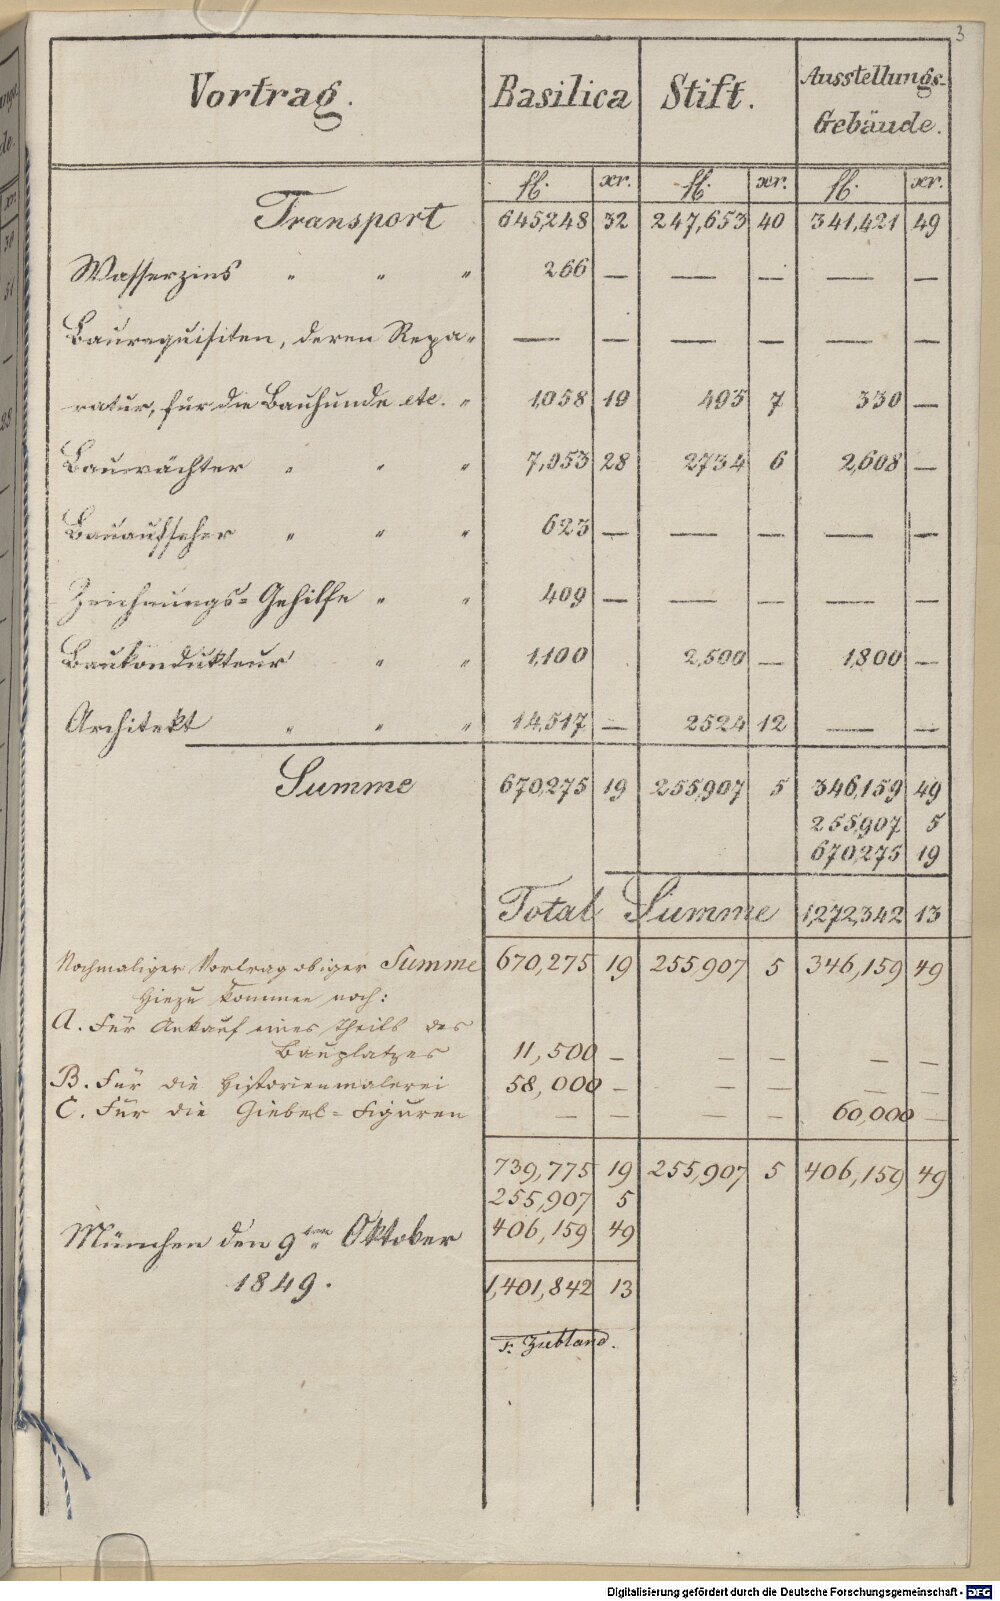 3
Vortrag. Basilica Stift. Ausstellungs-
Gebäude.
fl. xr. fl. xr. fl. xr.
Transport 645,248 32 247,653 40 341,421 49
Wasserzins " " " 266 — — — — —
Bauraquisiten, deren Repa- — — — — — —
ratur, für die Bauhunde etc. " 1,058 19 495 7 330 —
Bauwächter " " " 7,053 28 2734 6 2,608 —
Bauaufseher " " " 623 — — — — —
Zeichnungs-Gehilfe " " 409 — — — — —
Baukondukteur " " 1,100 2,500 — 1,800 —
Architekt " " " 14,517 — 2524 12 — —
Summe 670,275 19 255,907 5 346,159 49
255,907 5
670,275 19
Total Summe 1,272,342 13
Nochmaliger Vortrag obiger Summe 670,275 19 255,907 5 346,159 49
Hiezu kommen noch:
A. Für Ankauf eines Theils des
Bauplatzes 11,500 — — — — —
B. Für die Historienmalerei 58,000 — — — — —
C. Für die Giebel-Figuren — — — — 60,000 —
739,775 19 255,907 5 406,159 49
255,907 5
München den 9ten Oktober 406,159 49
1849. 1,401,842 13
F. Ziebland.
Digitalisierung gefördert durch die Deutsche Forschungsgemeinschaft - DFG